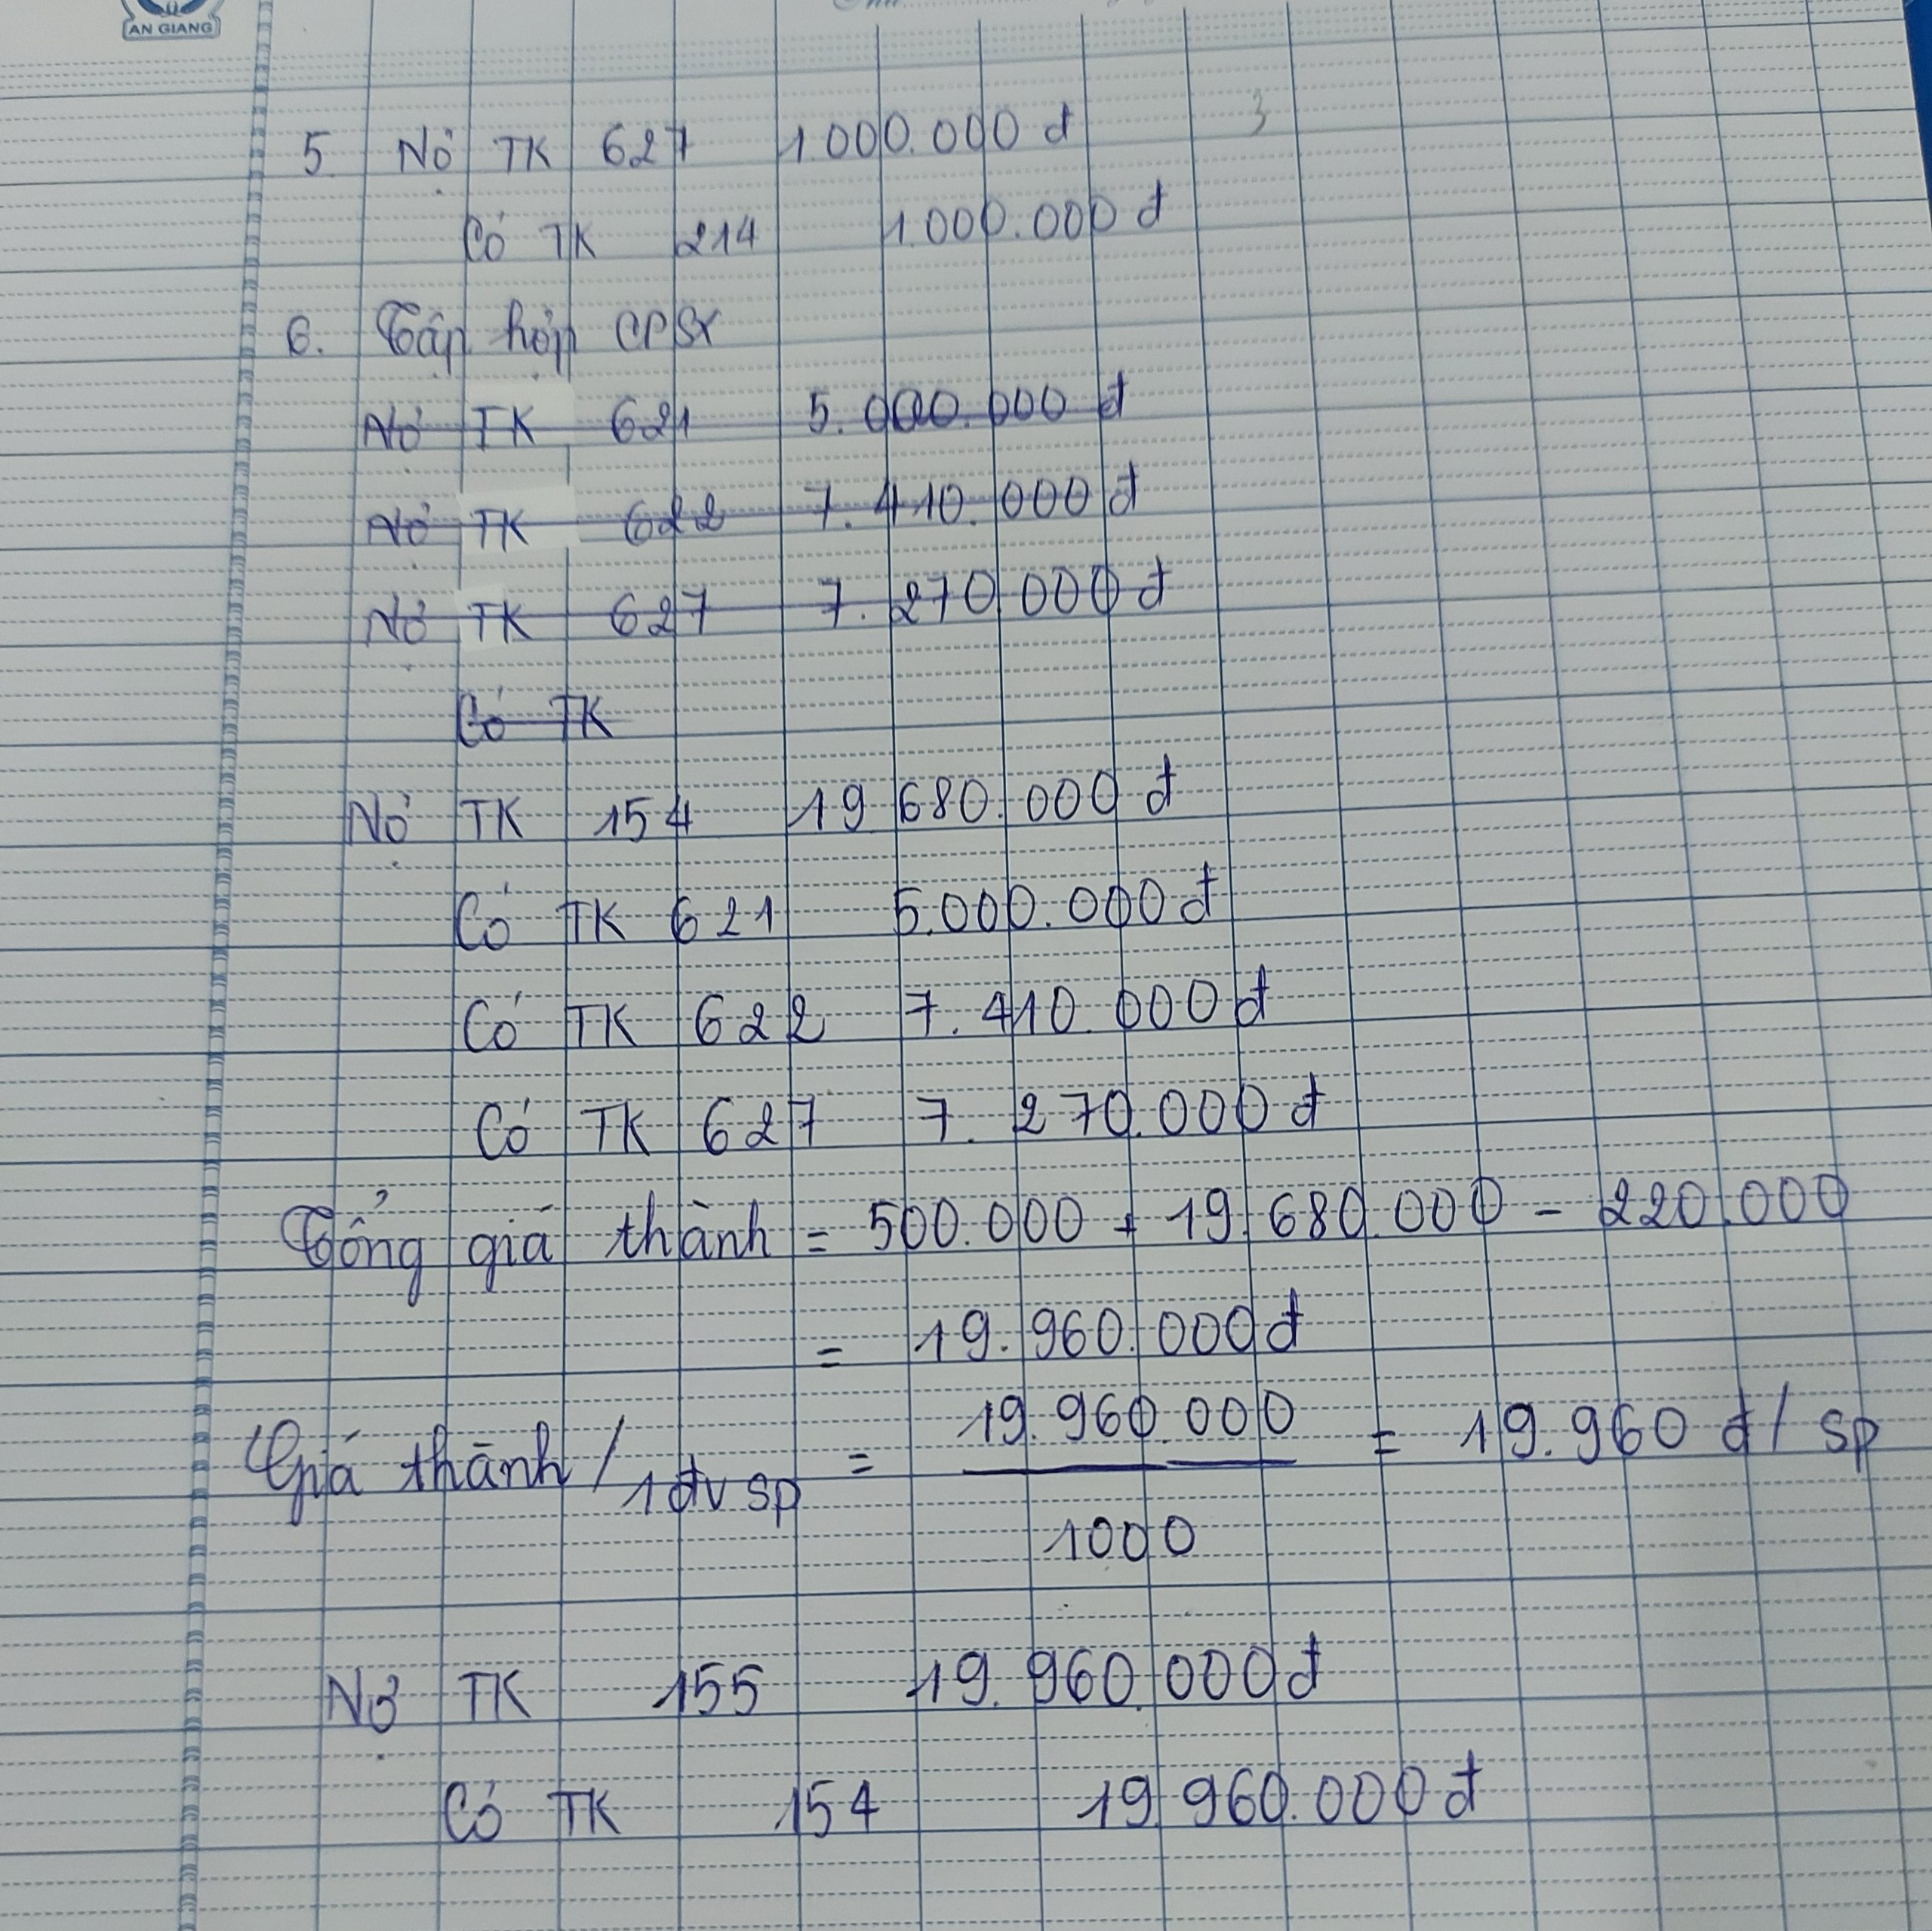 AN GIANG
3
5. Nợ TK 627 1.000.000 đ
Có TK 214 1.000.000 đ
6. Tập hợp CPSX
Nợ TK 621 5.000.000 đ
Nợ TK 622 7.410.000 đ
Nợ TK 627 7.270.000 đ
Có TK
Nợ TK 154 19.680.000 đ
Có TK 621 5.000.000 đ
Có TK 622 7.410.000 đ
Có TK 627 7.270.000 đ
Tổng giá thành = 500.000 + 19.680.000 - 220.000
= 19.960.000 đ
Giá thành / 1 đv sp = 19.960.000 / 1000 = 19.960 đ/sp
Nợ TK 155 19.960.000 đ
Có TK 154 19.960.000 đ